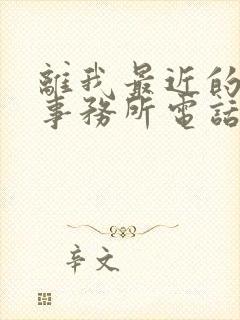 離我最近的
事務所電話
辛文